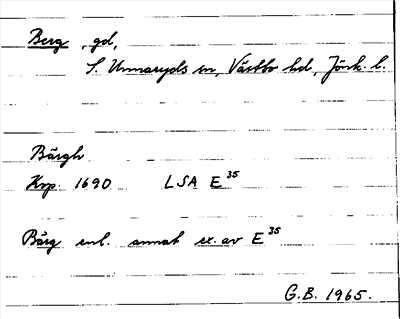 Berg, gd,
S. Unnaryds sn, Västbo hd, Jönk. l.
Bärgh
Krp. 1690 LSA E 35
Bärg enl. annat ex. av E 35
G.B. 1965.